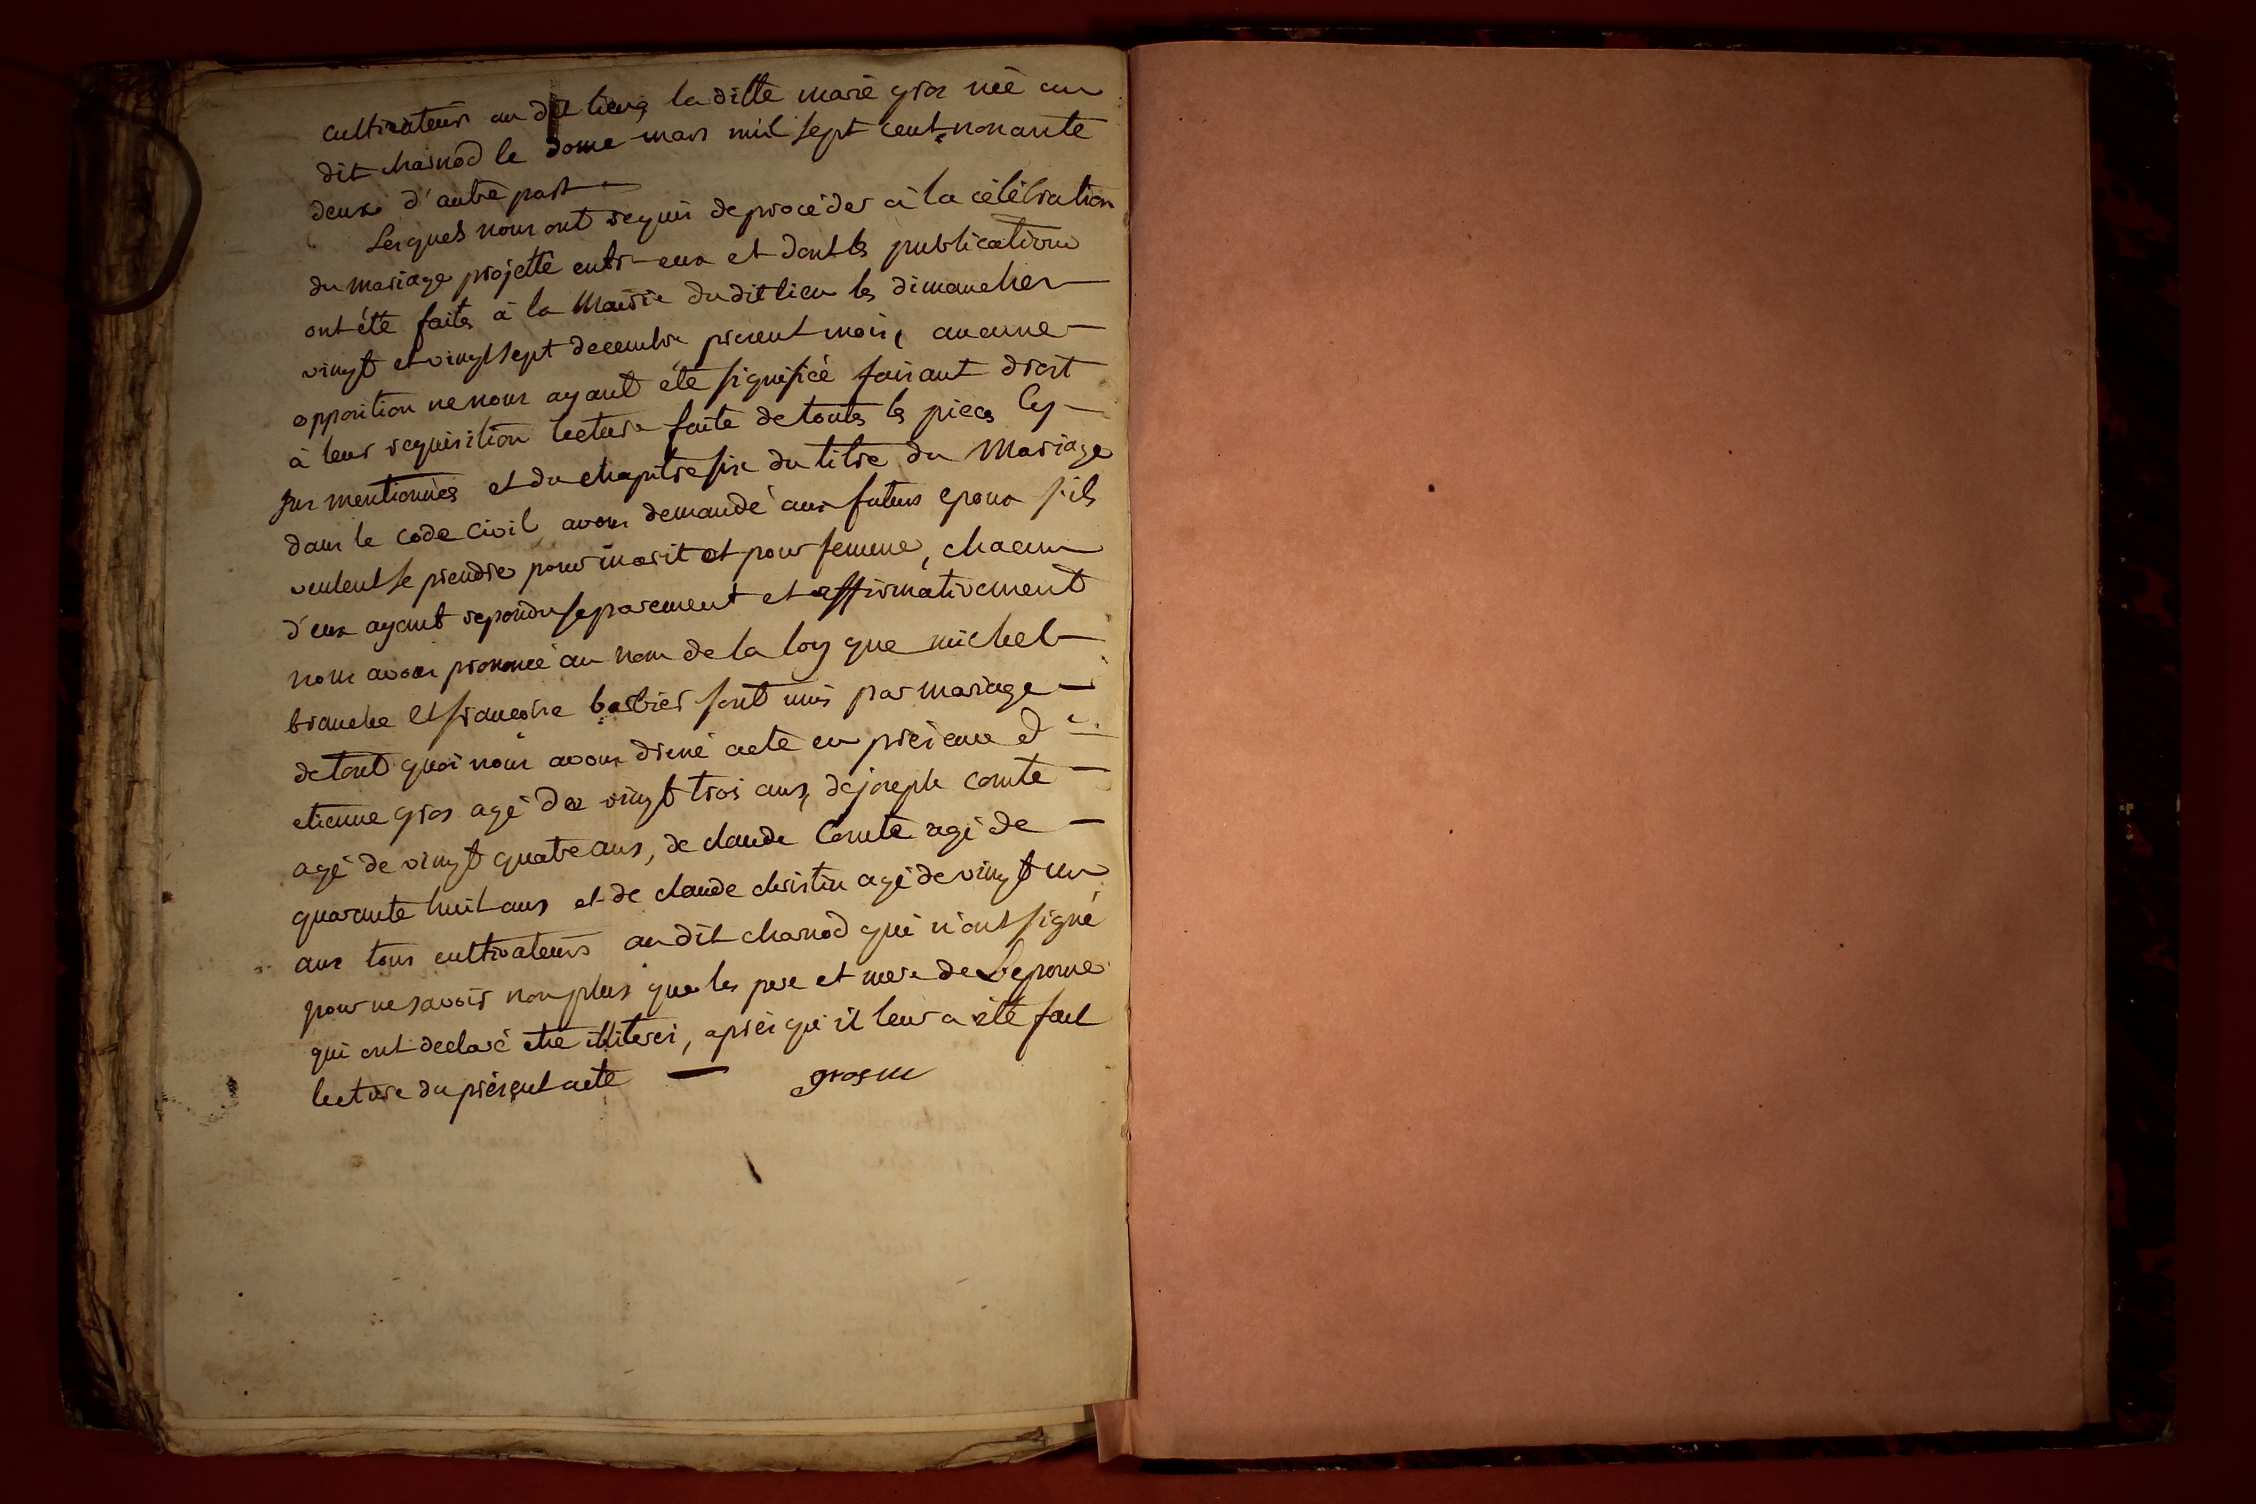 cultivateurs au dit lieu, la ditte marie gros née au
dit charnod le douze mars mil sept cent nonante
deux d'autre part
Lesquels nous ont requis de procéder à la célébration
du mariage projetté entr-eux et dont les publications
ont été faites à la Mairie dudit lieu les dimanches
vingt et vingt sept decembre présent mois, aucune
opposition ne nous ayant été signifiée faisant droit
à leur requisition lecture faite de toutes les pieces Cy
sus mentionnées et du chapitre six du titre du Mariage
dans le code civil avons demandé aux futurs epoux s'ils
veulent se prendre pour marit et pour femme, chacun
d'eux ayant repondu separement et affirmativement
nous avons prononcé au nom de la loy que michel
branche et francoise barbier sont unis par mariage
de tout quoi nous avons dressé acte en présence d
etienne gros agé de vingt trois ans, de joseph comte
agé de vingt quatre ans, de claude Comte agé de
quarante huit ans et de claude christin agé de vingt un
ans tous cultivateurs au dit charnod qui n'ont signé
pour ne savoir non plus que les pere et mere de Lepouse
qui ont declaré etre illiteres, après qu'il leur a été fait
lecture du présent acte gros m